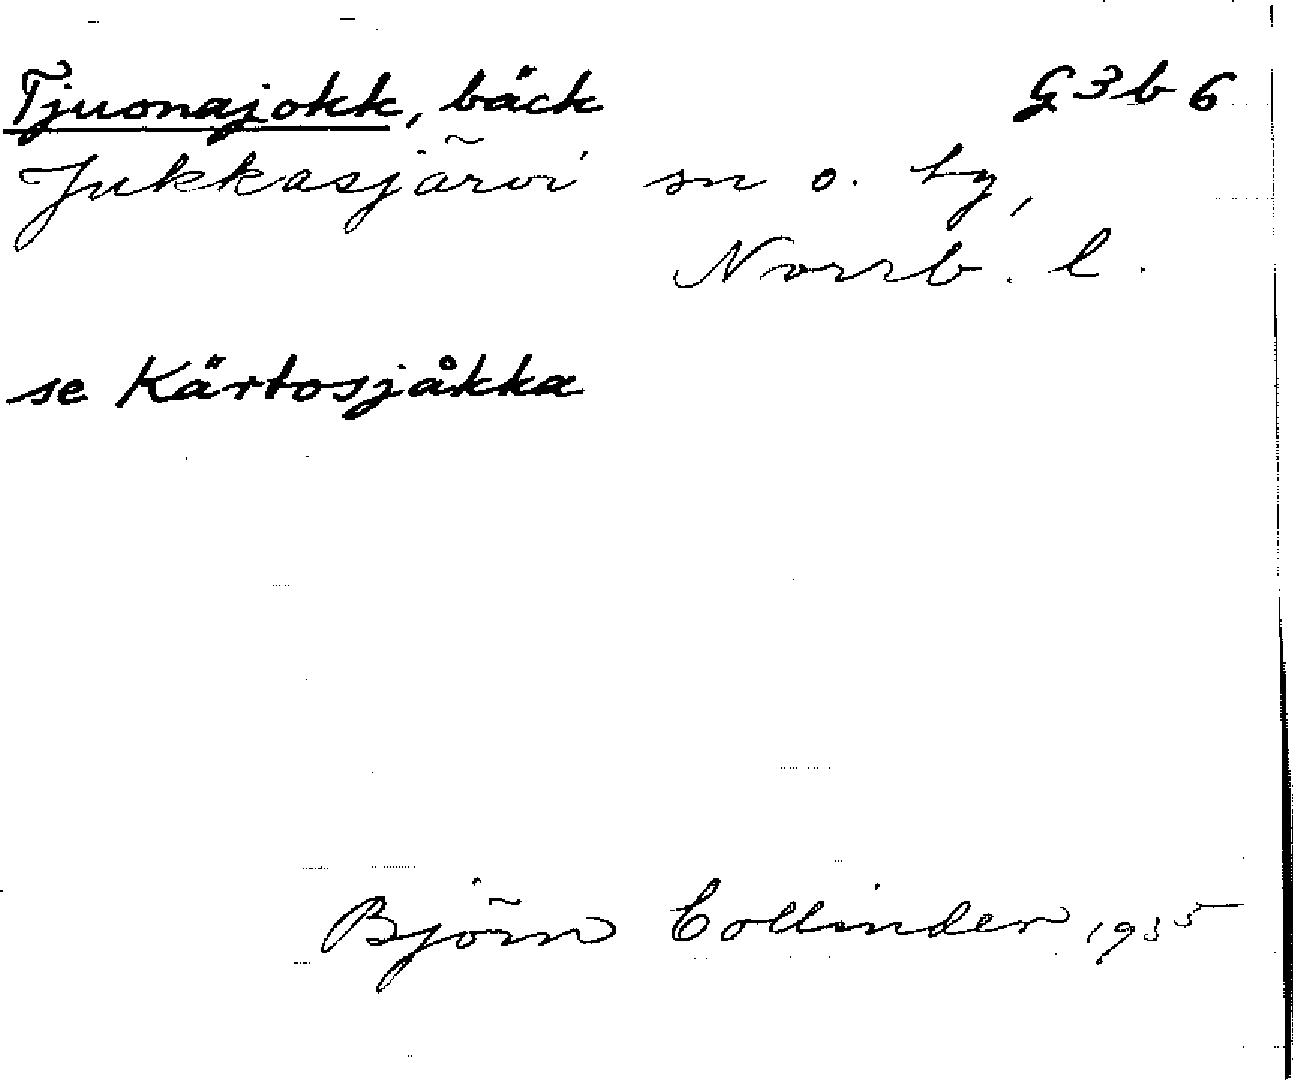 Tjuonajokk, bäck G3b6
Jukkasjärvi sn o. by,
Norrb. l.
se Kärtosjåkka
Björn Collinder 1935